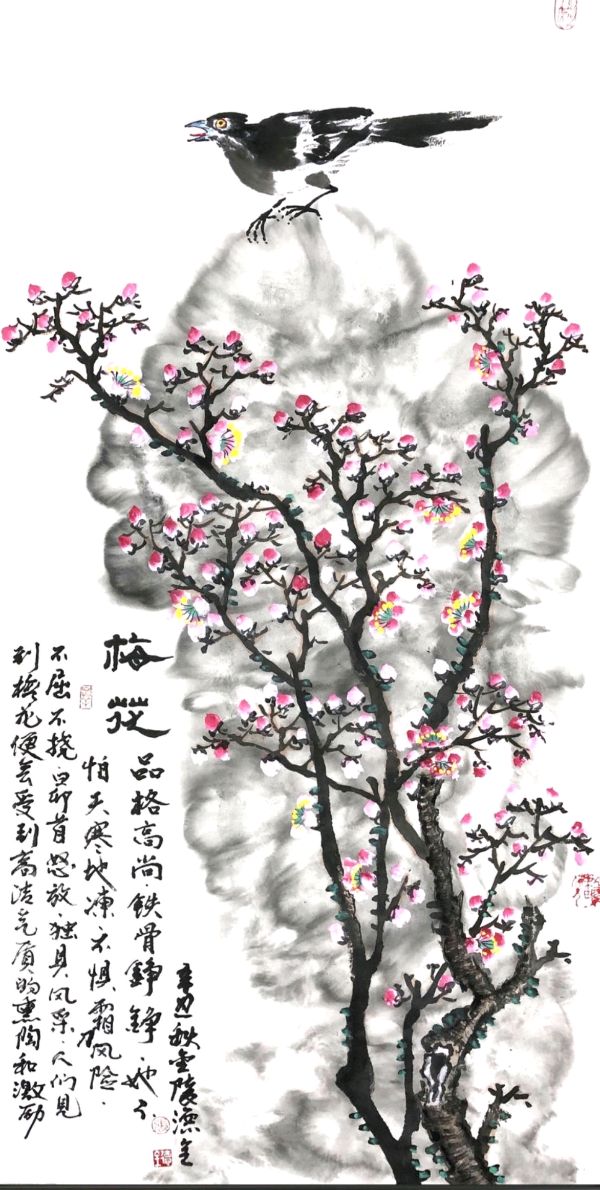 梅花
品格高尚.鉄骨錚錚.她不
怕天寒地凍.不惧霜刀风险.
不屈不挠.昂首怒放.独具风采.人们见
到梅花便会受到高洁气质的熏陶和激励
辛丑秋金陵